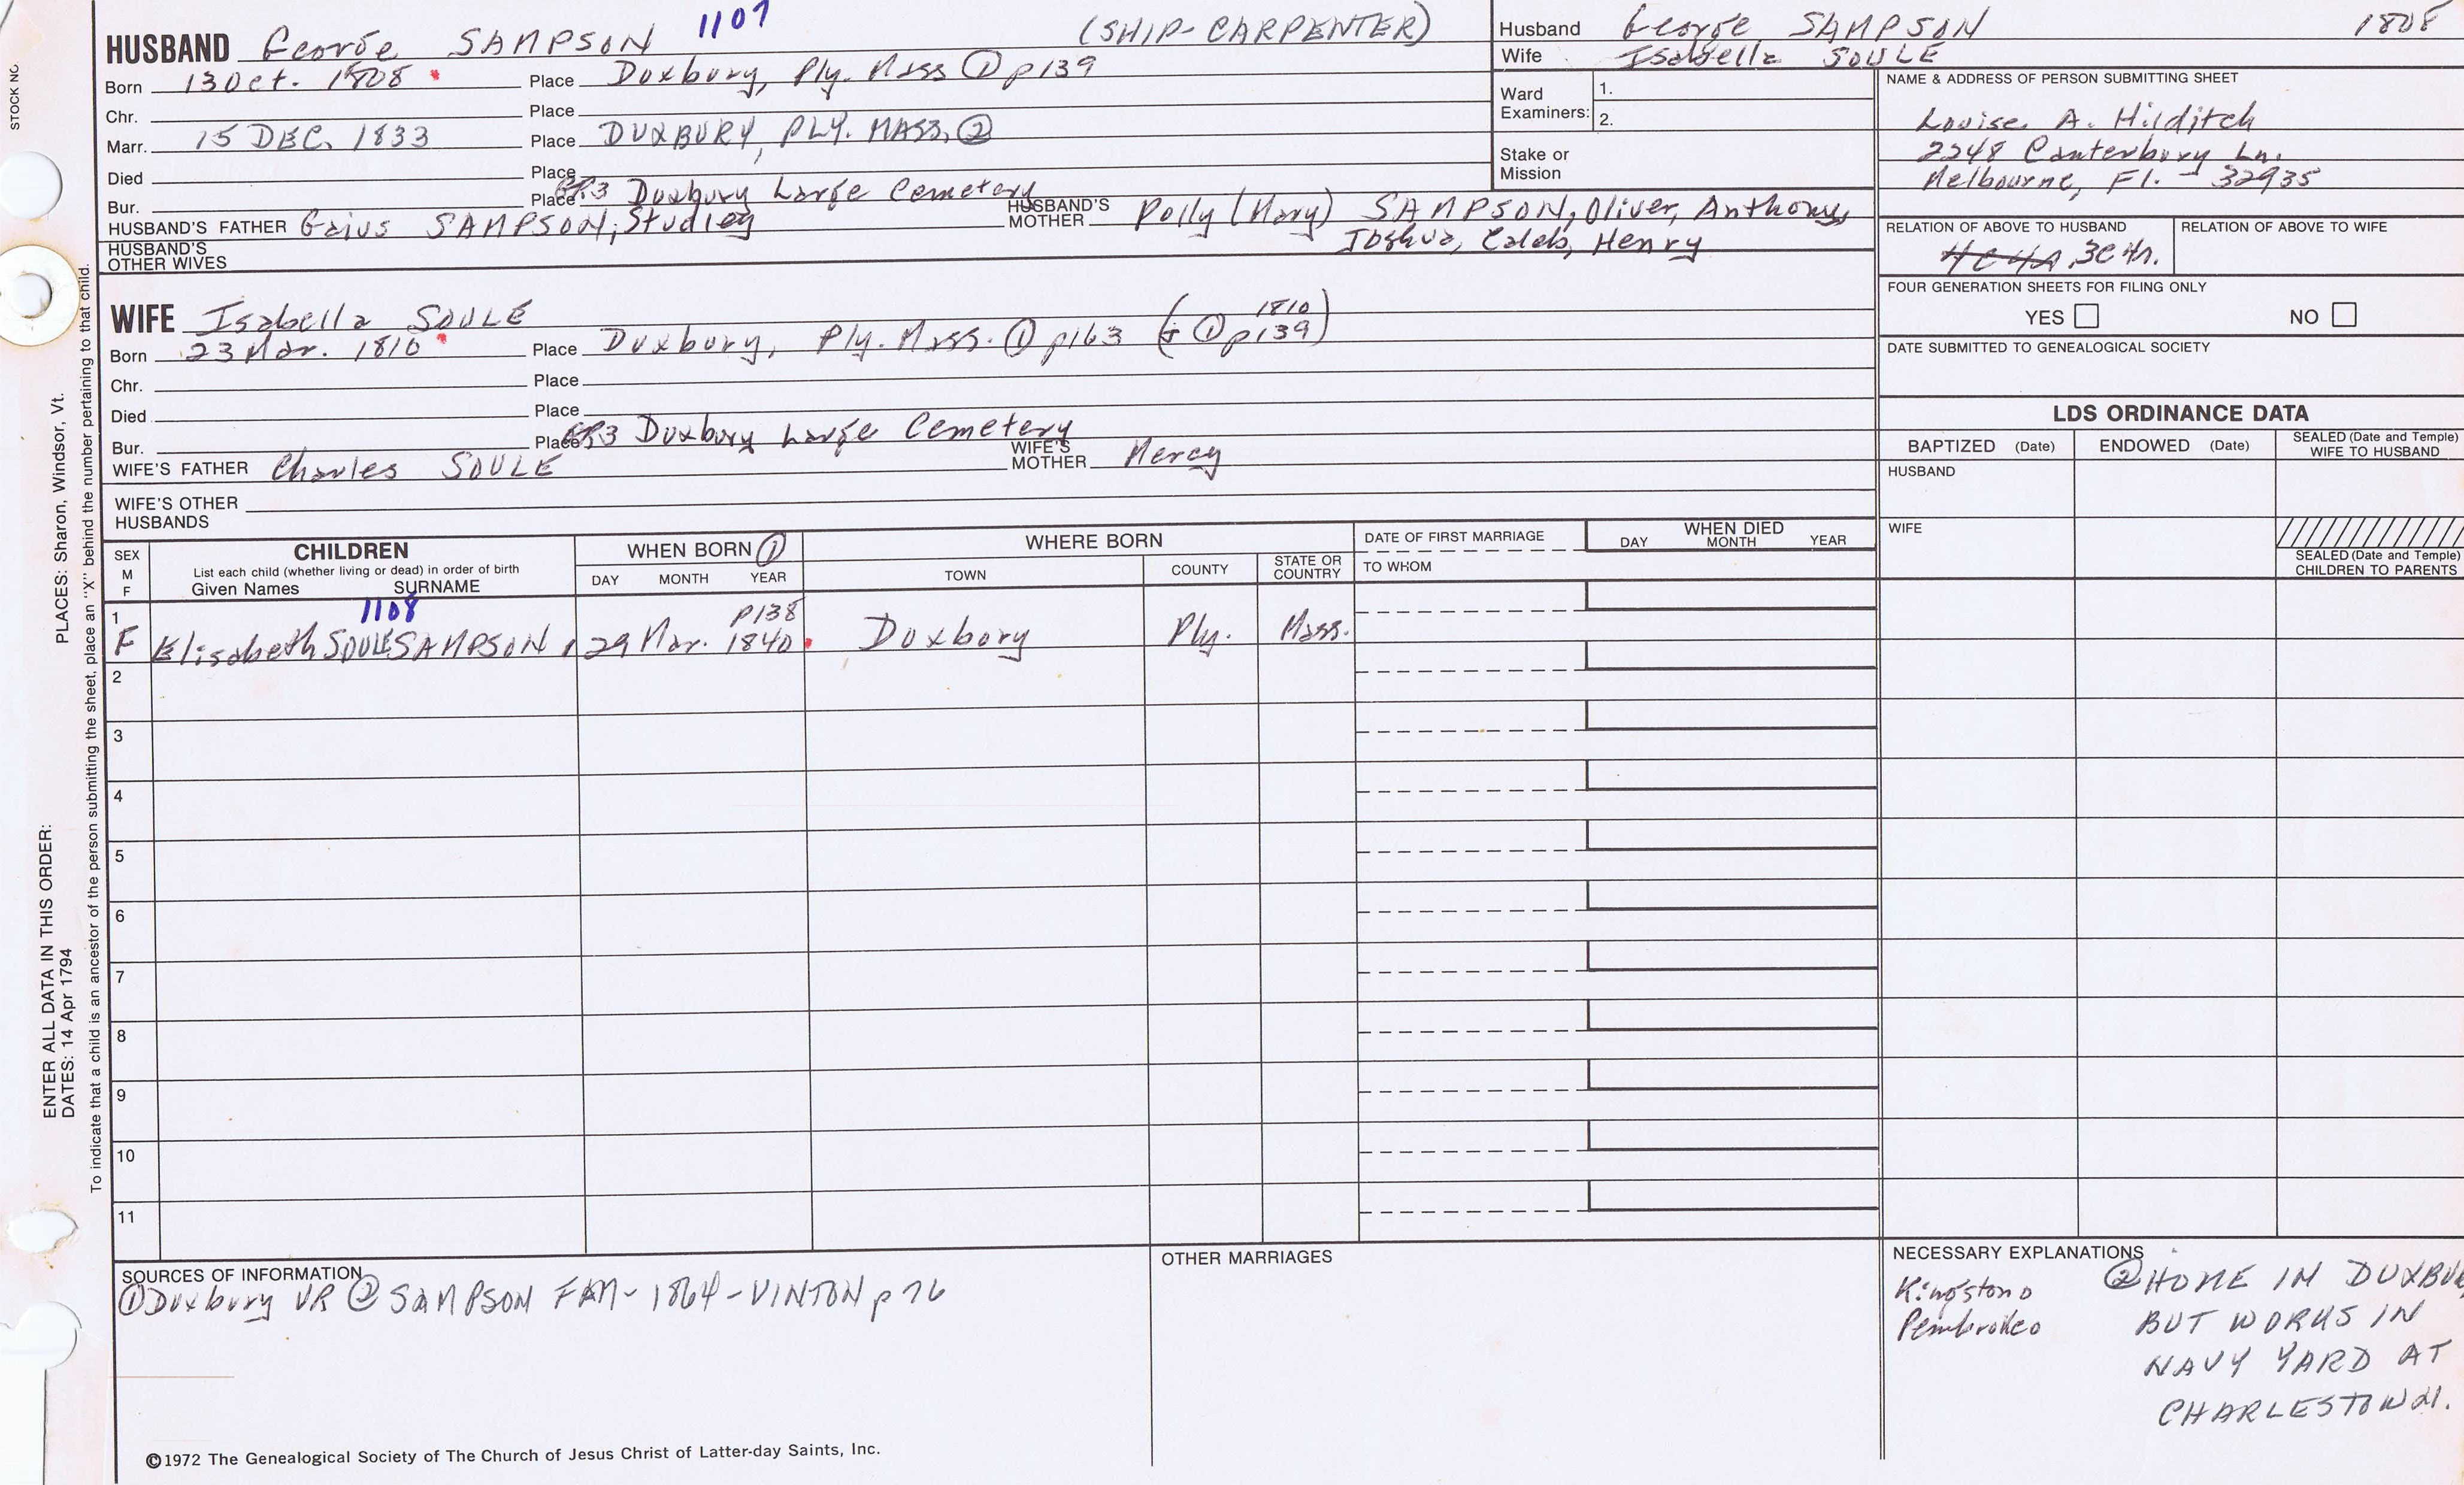 STOCK NO
PLACES: Sharon, Windsor, Vt.
ENTER ALL DATA IN THIS ORDER:
DATES: 14 Apr 1794
To indicate that a child is an ancestor of the person submitting the sheet, place an "X" behind the number pertaining to that child.
1107
HUSBAND George SAMPSON (SHIP-CARPENTER)
Born 13 Oct. 1808 Place Duxbury, Ply. Mass ① p139
Chr. Place
Marr. 15 DEC. 1833 Place DUXBURY, PLY. MASS, ②
Died Place
Bur. Place GR3 Duxbury Large Cemetery
HUSBAND'S FATHER Gaius SAMPSON, Studley HUSBAND'S MOTHER Polly (Mary) SAMPSON, Oliver, Anthony,
Joshua, Caleb, Henry
HUSBAND'S OTHER WIVES
Husband George SAMPSON 1808
Wife Isabella SOULE
Ward Examiners: 1.
2.
Stake or Mission
NAME & ADDRESS OF PERSON SUBMITTING SHEET
Louise A. Hilditch
2248 Canterbury Ln.
Melbourne, Fl. - 32935
RELATION OF ABOVE TO HUSBAND RELATION OF ABOVE TO WIFE
3C4r.
FOUR GENERATION SHEETS FOR FILING ONLY
YES NO
DATE SUBMITTED TO GENEALOGICAL SOCIETY
WIFE Isabella SOULE
1810
Born 23 Mar. 1810 Place Duxbury, Ply. Mass. ① p163 (+ ① p139)
Chr. Place
Died Place
Bur. Place GR3 Duxbury Large Cemetery
WIFE'S FATHER Charles SOULE WIFE'S MOTHER Mercy
WIFE'S OTHER HUSBANDS
LDS ORDINANCE DATA
BAPTIZED (Date) ENDOWED (Date) SEALED (Date and Temple) WIFE TO HUSBAND
HUSBAND
WIFE
SEALED (Date and Temple) CHILDREN TO PARENTS
SEX M F
CHILDREN
List each child (whether living or dead) in order of birth
Given Names SURNAME
WHEN BORN ①
DAY MONTH YEAR
WHERE BORN
TOWN COUNTY STATE OR COUNTRY
DATE OF FIRST MARRIAGE
TO WHOM
WHEN DIED
DAY MONTH YEAR
1108 p138
1 F Elisabeth SOULE SAMPSON 29 Mar. 1840 Duxbury Ply. Mass.
2
3
4
5
6
7
8
9
10
11
SOURCES OF INFORMATION
① Duxbury VR ② SAMPSON FAM - 1864 - VINTON p 76
OTHER MARRIAGES
NECESSARY EXPLANATIONS
Kingston o
Pembroke o
② HOME IN DUXBU
BUT WORKS IN
NAVY YARD AT
CHARLESTOWN.
©1972 The Genealogical Society of The Church of Jesus Christ of Latter-day Saints, Inc.